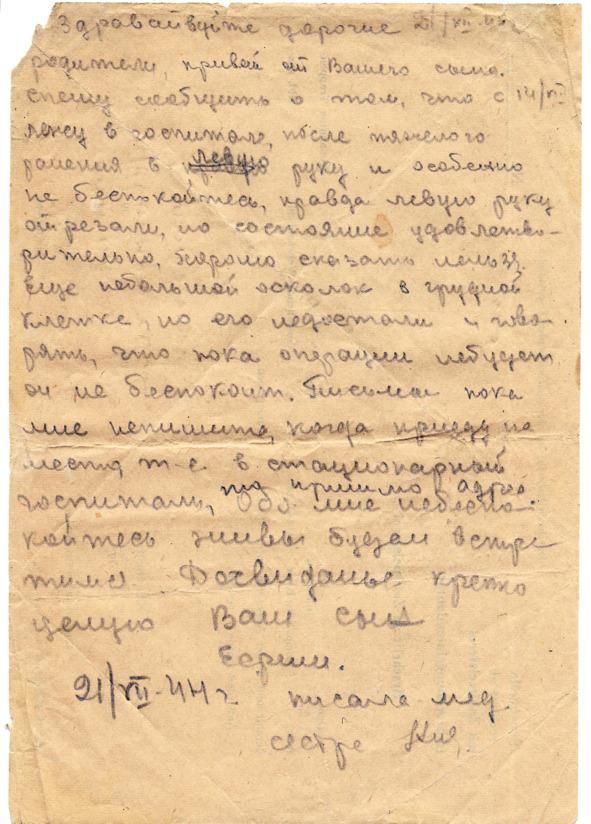 Здравайвуйте дорогие 21/XII-44г
родители, привет от Вашего сына.
спешу сообщить о том, что с 14/XII
лежу в госпитале, после тяжелого
ранения в левую руку и особенно
не беспокойтесь, правда левую руку
отрезали, но состояние удовлетво-
рительно, хорошо сказать нельзя.
Еще небольшой осколок в грудной
клетке, но его недостали и гово-
рять, что пока операции небудет
он не беспокоит. Письма пока
мне непишите, когда приеду на
место, т-е. в стационарный
госпиталь, то пришлю адрес.
Обо мне небеспо-
койтесь живы будем встре
тимся Досвиданье крепко
целую Ваш сын
Ефим.
21/XII-44г писала мед
сестра